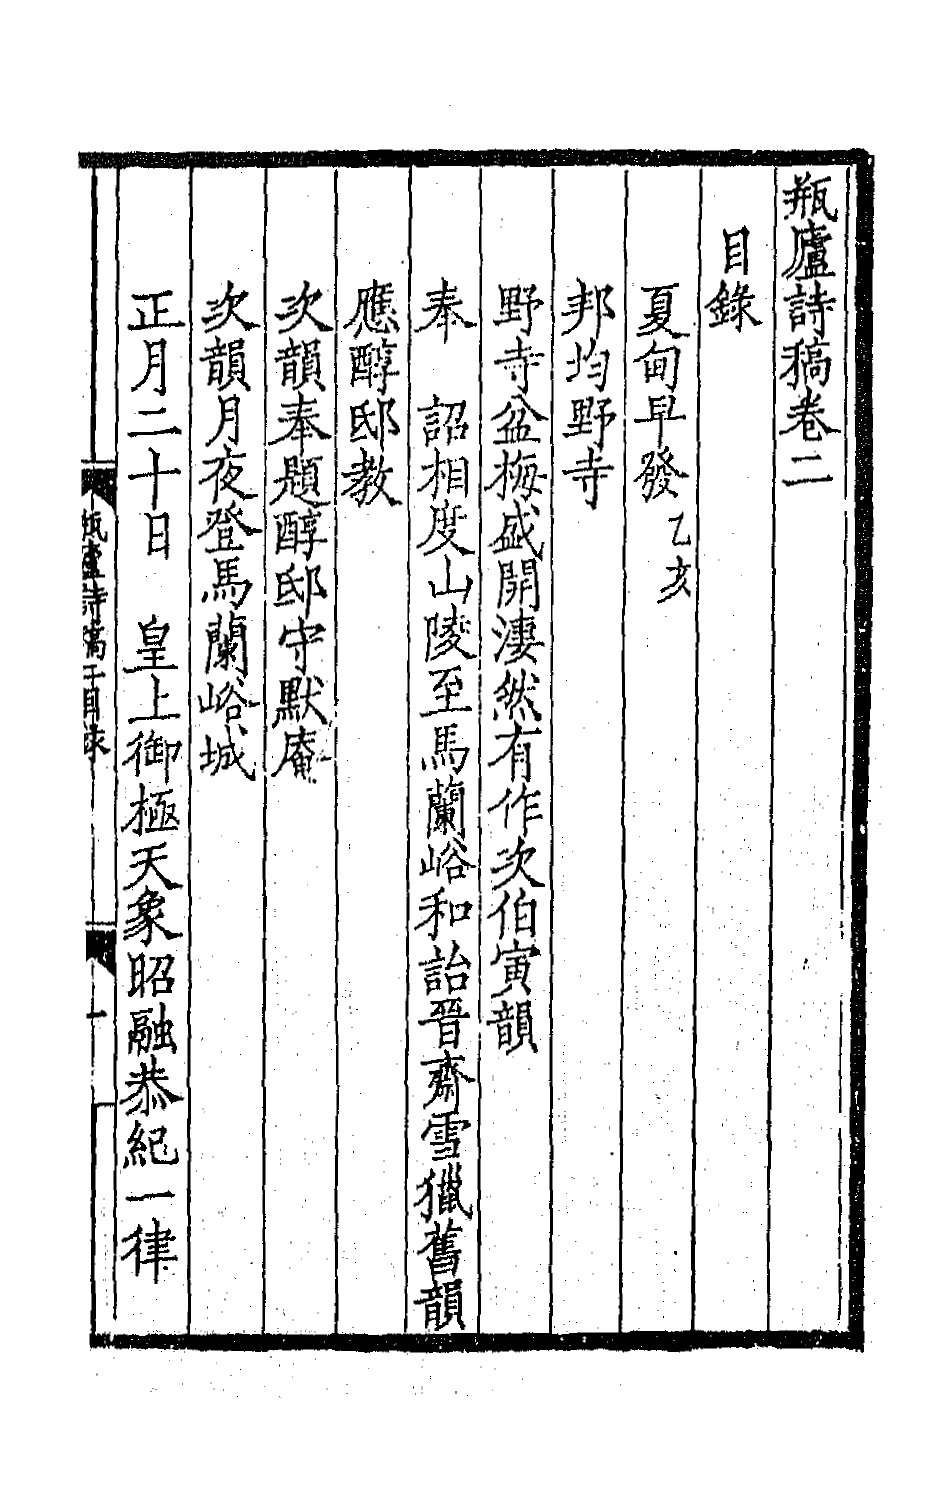 瓶廬詩稿卷二
目錄
夏甸早發乙亥
邦均野寺
野寺盆梅盛開淒然有作次伯寅韻
奉 詔相度山陵至馬蘭峪和詒晉齋雪獵舊韻
應醇邸教
次韻奉題醇邸守默庵
次韻月夜登馬蘭峪城
正月二十日 皇上御極天象昭融恭紀一律
瓶廬詩稿二目錄
一